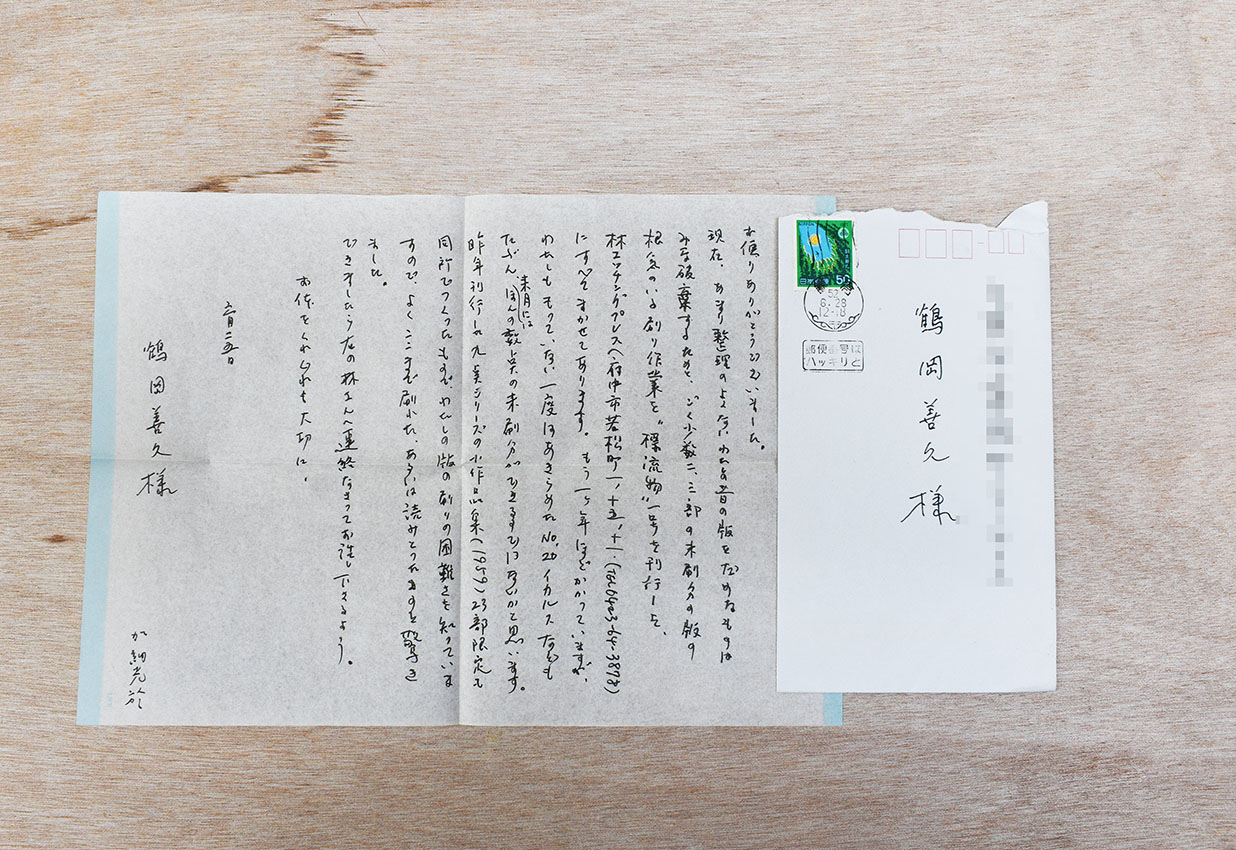 お便りありがとうございました。
現在、あまり整理のよくないわたし昔の版をだめなものは
みな破棄するためと、ごく少数二、三部の未刷分の版の
根気のいる刷り作業を〝漂流物〟一号を刊行した、
林エッチングプレスへ府中市若松町一ノ十五ノ十一(Tel 0423-64-3878)
にすべてまかせてあります。もう一ヶ年ほどかかっていますが、
わたしももっていない一度はあきらめたNo.20 イカルスなども
たぶん来月にはほんの数点の未刷分ができるのではないかと思います。
昨年刊行した九点シリーズの小作品集(1959)23部限定も
同所でつくったもので、わたしの版の刷りの困難さを知っていま
すので、よくここまで刷れた、あるいは読みとったものと驚き
ました。
できましたらうたの林さんへ連絡なさってお話し下さるよう。
お体をくれぐれも大切に。
六月二五日
鶴岡善久様
加納光於
日本郵便 50
52
6.28
12-18
郵便番号は
ハッキリと
鶴岡善久様